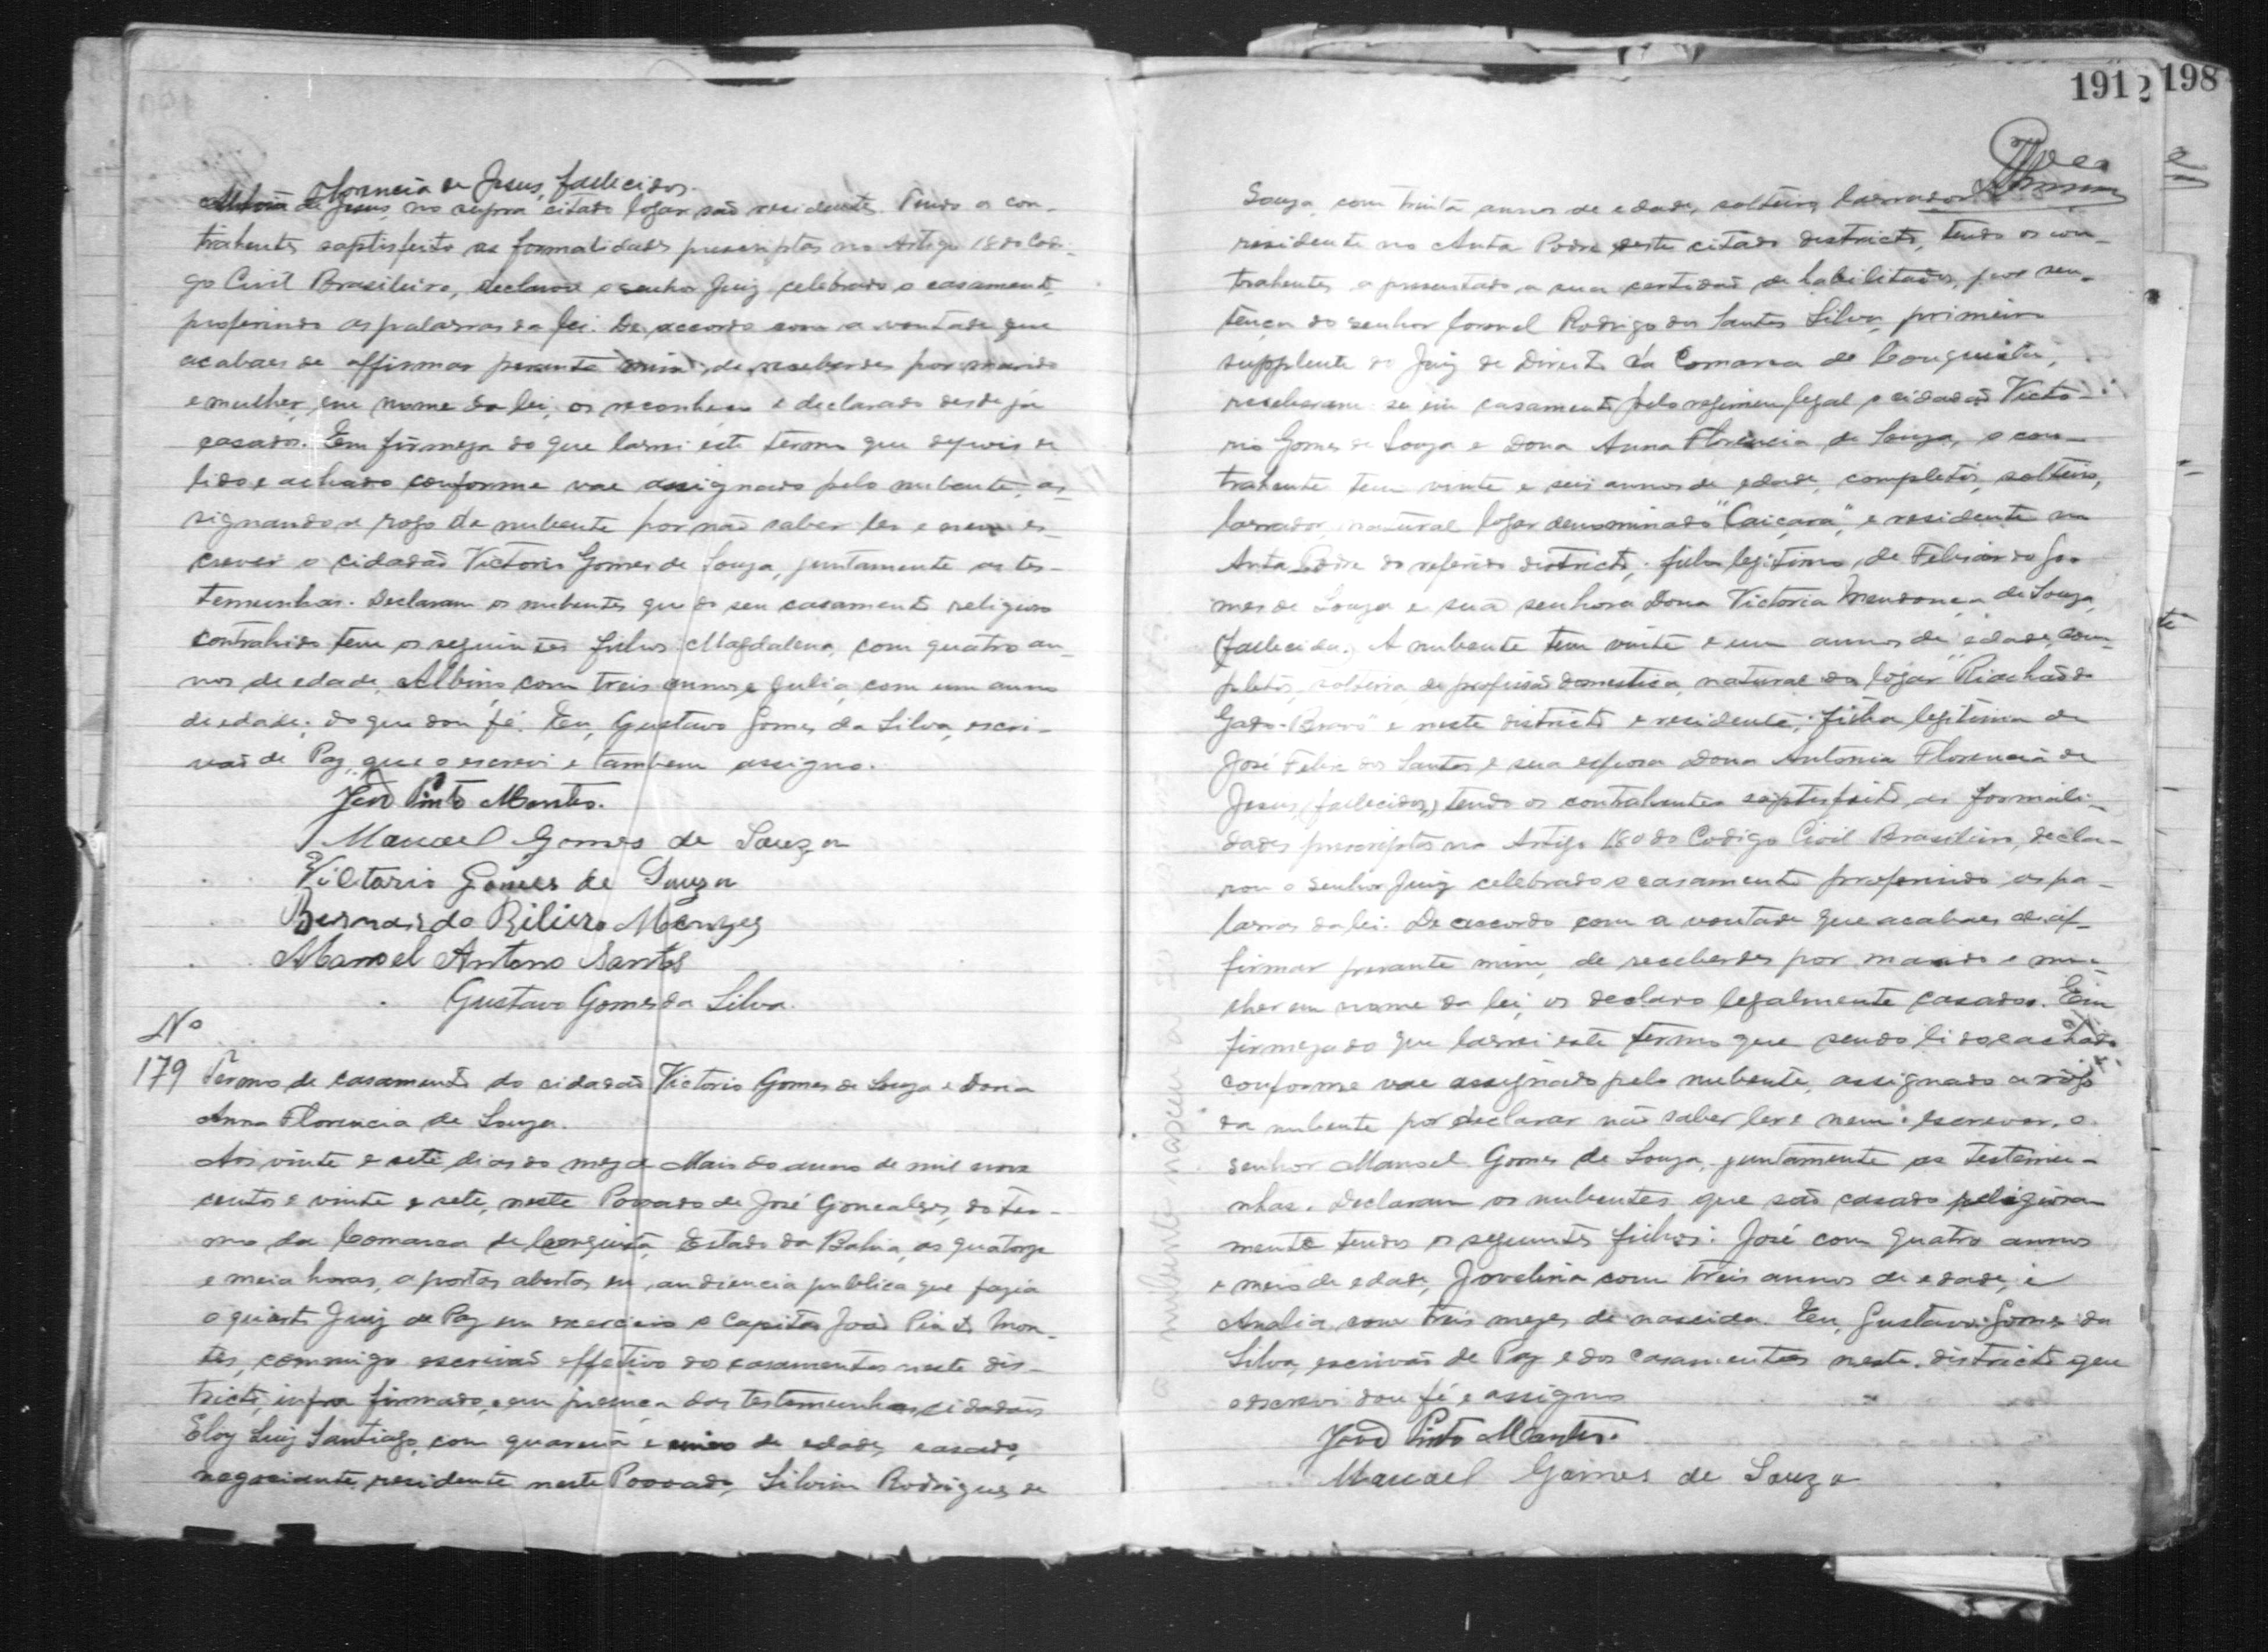 Florencia de Jesus, fallecidos.
de Jesus, no supra citado logar são residentes. Tendo os con-
trahentes saptisfeito as formalidades prescriptas no Artigo 180 do Codi-
go Civil Brasileiro, declarou o senhor Juiz celebrado o casamento,
proferindo as palavras da lei. De accordo com a vontade que
acabaes de affirmar perante mim, de receberdes por marido
e mulher, em nome da lei, os reconheço e declarado desde já
casados. Em firmeza do que lavrei este termo que depois de
lido e achado conforme vae assignado pelo nubente, as-
signando a rogo da nubente por não saber ler e nem es-
crever o cidadão Victorio Gomes de Souza, juntamente as tes-
temunhas. Declaram os nubentes que do seu casamento religioso
contrahido tem os seguintes filhos: Magdalena, com quatro an-
nos de edade, Albino, com treis annos, e Julia, com um anno
de edade; do que dou fé. Eu, Gustavo Gomes da Silva, escri-
vão de Paz, que o escrevi e tambem assigno.
João Pinto Montes.
Manoel Gomes de Souza
Victorio Gomes de Souza
Bernardo Menezes
Manoel Antono Santos
Gustavo Gomes da Silva.
Nº
179 Termo de casamento do cidadão Victorio Gomes de Souza e Dona
Anna Florencia de Souza.
Aos vinte e sete dias do mez de Maio do anno de mil nove
centos e vinte e sete, neste Povoado de José Gonçalves, do ter-
mo da Comarca de Conquista, Estado da Bahia, as quatorze
e meia horas, a portas abertas em audiencia publica que fazia
o quarto Juiz de Paz em exercicio o Capitão João Pinto Mon-
tes, commigo escrivão effetivo dos casamentos neste dis-
tricto, infra firmado, e em presença das testemunhas cidadãos
Eloy Luiz Santiago, com quarenta e de edade, casado,
negociante, residente neste Povoado, Silvino Rodrigues de
191 2 198
Souza, com trinta annos de edade, solteiro, lavrador
residente no Anta Podre deste citado districto, tendo os con-
trahentes apresentado a sua certidão de habilitados, por sen-
tença do senhor Coronel Rodrigo dos Santos Silva, primeiro
supplente do Juiz de Direito da Comarca de Conquista,
receberam-se em casamento pelo regimen legal o cidadão Victo-
rio Gomes de Souza e Dona Anna Florencia de Souza, o con-
trahente tem vinte e seis annos de edade, completos, solteiro,
lavrador, natural logar denominado "Caiçara", e residente na
Anta Podre do referido districto, filho legitimo de Felisardo Go-
mes de Souza e sua senhora Dona Victoria Mendonça de Souza,
(fallecida.) A nubente tem vinte e um annos de edade, com-
pletos, solteira, de profissão domestica, natural do logar "Riachão do
Gado-Bravo" e neste districto e residente, filha legitima de
José Felix dos Santos e sua esposa Dona Antonia Florencia de
Jesus, (fallecidos,) tendo os contrahentes saptisfeito as formali-
dades prescriptas no Artigo 180 do Codigo Civil Brasileiro, decla-
rou o senhor Juiz celebrado o casamento proferindo as pa-
lavras da lei. De accordo com a vontade que acabaes de af-
firmar perante mim, de receberdes por marido e mu-
lher em nome da lei, os declaro legalmente casados. Em
firmeza do que lavrei este termo que sendo lido e achado
conforme vae assignado pelo nubente, assignado a rogo
da nubente por declarar não saber ler e nem escrever, o
senhor Manoel Gomes de Souza, juntamente as testemu-
nhas. Declaram os nubentes que são casado religiosa-
mente tendo os seguintes filhos: José com quatro annos
e meio de edade, Jovelina com treis annos de edade, e
Analia com treis mezes de nascida. Eu, Gustavo Gomes da
Silva, escrivão de Paz e dos casamentos neste districto que
o escrevi dou fé e assigno
João Pinto Montes.
Manoel Gomes de Souza
a nubente nasceu